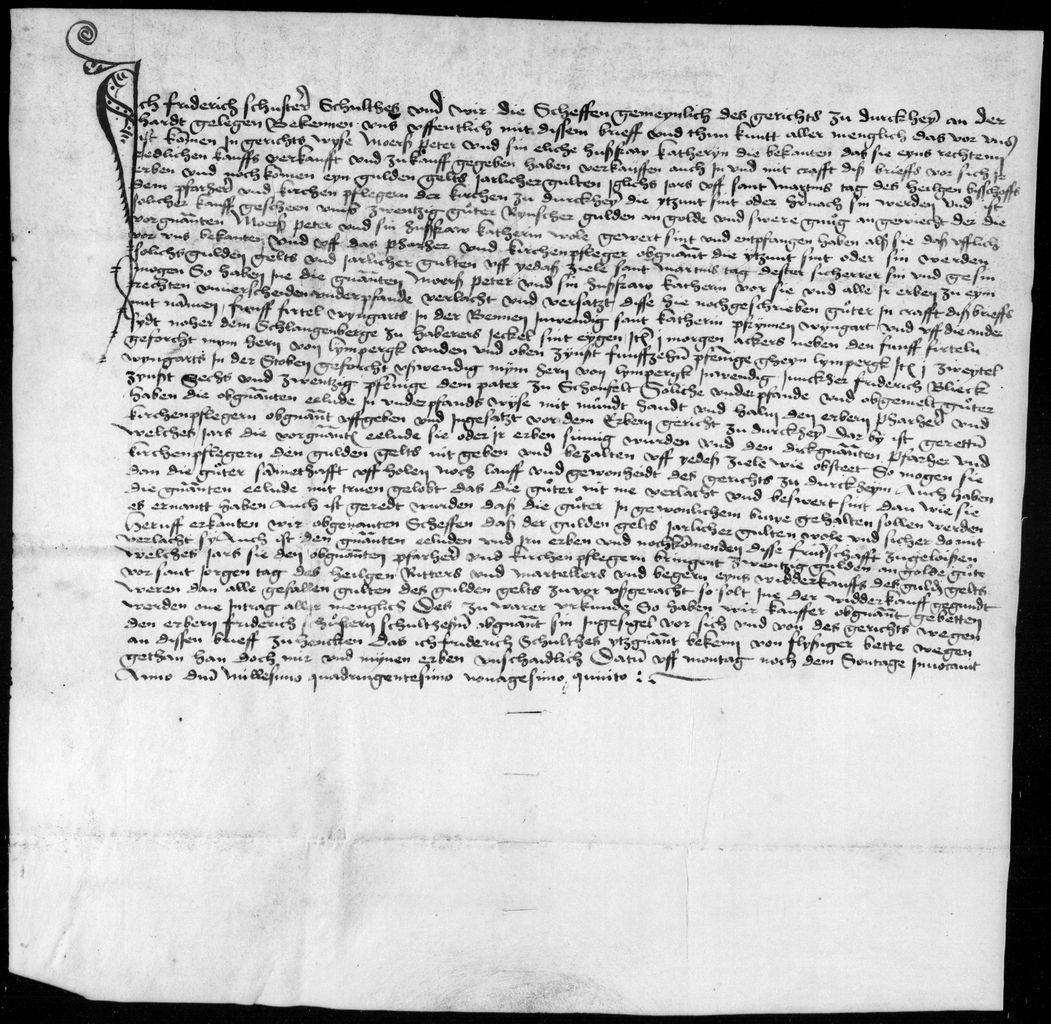 Ich friderich schuster Schulthes vnd wir die Scheffen gemeynlich des gerichts zu durckhey an der
hardt gelegen Bekennen vns offentlich mit dissem brieff vnd thun kuntt aller menglich das vor vns
ist komen In gerichts wyse Moerß Peter vnd sin eliche hußfraw katheryn die bekanten das sie eyns rechten
redlichen kauffs verkaufft vnd zu kauff gegeben haben verkauffen auch in vnd mit crafft diß brieffs vor sich jr
erben vnd nochkomen eyn gulden gelts jarlicher gulten jglichs jars vff sant martins tag des heilgen bisschoffs
dem pfarher vnd kirchen pflegern der kirchen zu durckhey die ytzunt sint oder hernach sin werden vnd ist
solicher kauff gescheen vmb zwentzig guter Rynscher gulden an golde vnd swere gnug angewicht der die
vorgnanten Moerß Peter vnd sin hußfraw katherin wole gewert sint vnd entpfangen haben alß sie daß offlich
vor vns bekanten vnd vff das pharher vnd kirchenpfleger obgnant die ytzunt sint oder sin werden
solichs gulden gelts vnd jarlicher gulten vff yedaß ziele sant martins tag dester sicherrer sin vnd gesin
mogen So haben jne die gnanten Moerß Peter vnd sin hußfraw katherin vor sie vnd alle jr erben zu eym
rechten vnuerscheiden vnderpfande verlacht vnd versatzt disse hie nochgeschrieben guter in crafft diß brieffs
mit namen funff firtel wyngarts in der Bennen inwendig sant katherin pfrymen wyngart vnd vff die ander
sydt naher dem Schlangenberge zu haberers jeckel sint eygen Jt j morgen ackers neben den funff firteln
geforcht mym hern von lympergk vnden vnd oben zynst funffzehn pfenige gheyn lympergk Jt j zweytel
wyngarts in der Stoben geforcht vßwendig mym hern von lympergk inwendig junckher friderich Blieck
zynst Sechs vnd zwentzig pfenige dem pater zu Schonfelt Soliche vnderpfande vnd obgemelt guter
haben die obgnanten eelude in vnderpfands wyse mit mundt handt vnd halm den erbern pharher vnd
kirchenpflegern obgnant vffgeben vnd ingesatzt vor dem Erbern gericht zu durckhey Dar by ist gerettn
welches jars die vorgnant eelude sie oder jr erben sumig wurden vnd den dickgnanten pfarher vnd
kirchenpflegern den gulden gelts nit geben vnd bezalten vff yedeß ziele wie obsteet So mogen sie
dan die guter samethafft vff holen noch lauff vnd gewonheidt des gerichts zu durckheym Auch haben
die gnanten eelude mit truen gelobt das die guter nit me verlacht vnd beswert sint dan wie sie
es ernantt haben Auch ist geredt wurden daß die guter in gewonlichem buwe gehalten sollen werden
Heruff erkanten wir obgenanten Scheffen daß der gulden gelts jarlicher gulten wole vnd sicher do mit
verlacht sy Auch ist den gnanten eeluden vnd jrn erben vnd nochkomenden disse fruntschafft zugeloißen
welches jars sie den obgnanten pfarher vnd kirchenpflegern bringent zwentzig gulden an golde gute
vor sant jorgen tag des heilgen Ritters vnd martellers vnd begern eyns widderkauffs des guldn gelts
weren dan alle gefallen gulten des gulden gelts zuvor vßgeracht so solt jne der widderkauff gegundt
werden one intrag aller menglich Des zu warer vrkunde So haben wir kauffer obgnant gebetten
den erbern friderich schustern schultzeyn obgnant sin ingesigel vor sich vnd von des gerichts wegen
an dissen brieff zu hencken Das ich friderich Schulthes ytzgnant bekenn von flyssiger bette wegen
gethan han doch mir vnd mynen erben vnschaidlich Datum vff montag noch dem Sontage inuocauit
Anno dni Millesimo quadringentesimo nonagesimo quinto